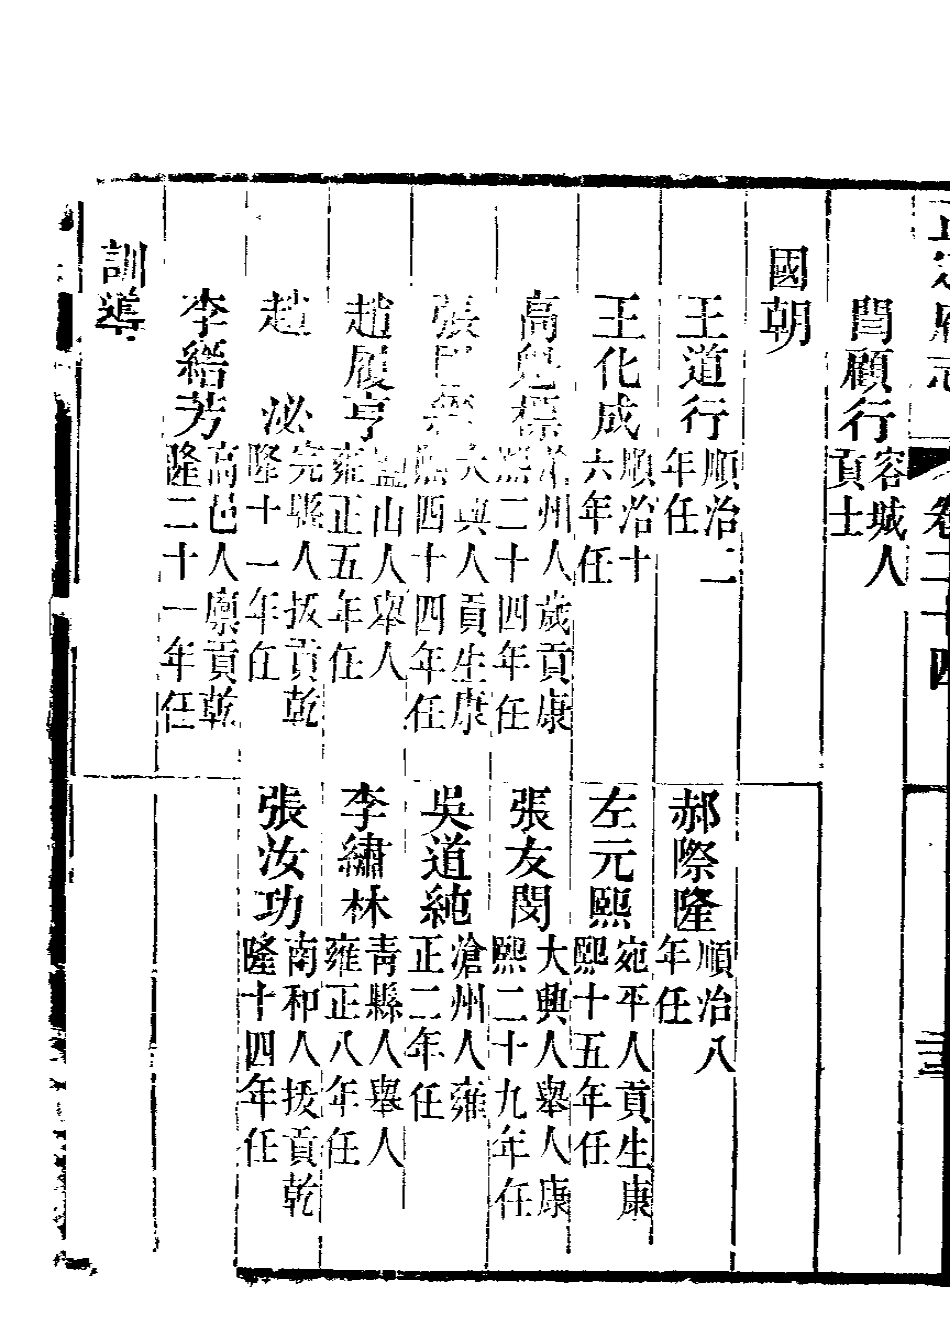 府志 卷二十四
閆顧行 容城人貢士
國朝
王道行 順治二年任 郝際隆 順治八年任
王化成 順治十六年任 左元熙 宛平人貢生康熙十五年任
高魁標 滄州人歲貢康熙二十四年任 張友閔 大興人舉人康熙二十九年任
張 大興人貢生康熙四十四年任 吳道純 滄州人雍正二年任
趙履亨 鹽山人舉人雍正五年任 李繡林 青縣人舉人雍正八年任
趙泌 完縣人拔貢乾隆十一年任 張汝功 南和人拔貢乾隆十四年任
李縉芳 高邑人廩貢乾隆二十一年任
訓導